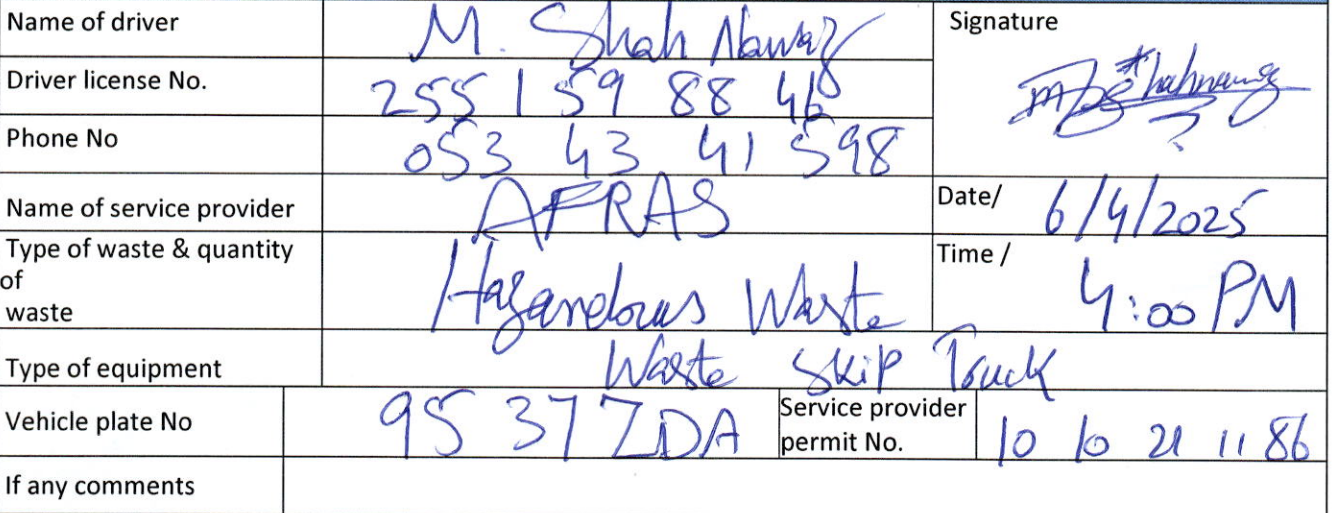 Name of driver M. Shah Nawaz Signature
Driver license No. 255 1 59 88 46
Phone No 053 43 41 598
Name of service provider AFRAS Date/ 6/4/2025
Type of waste & quantity Time /
of Hazardous Waste 4:00 PM
waste
Type of equipment Waste Skip Truck
Vehicle plate No 95 37 ZDA Service provider
permit No. 10 10 21 11 86
If any comments